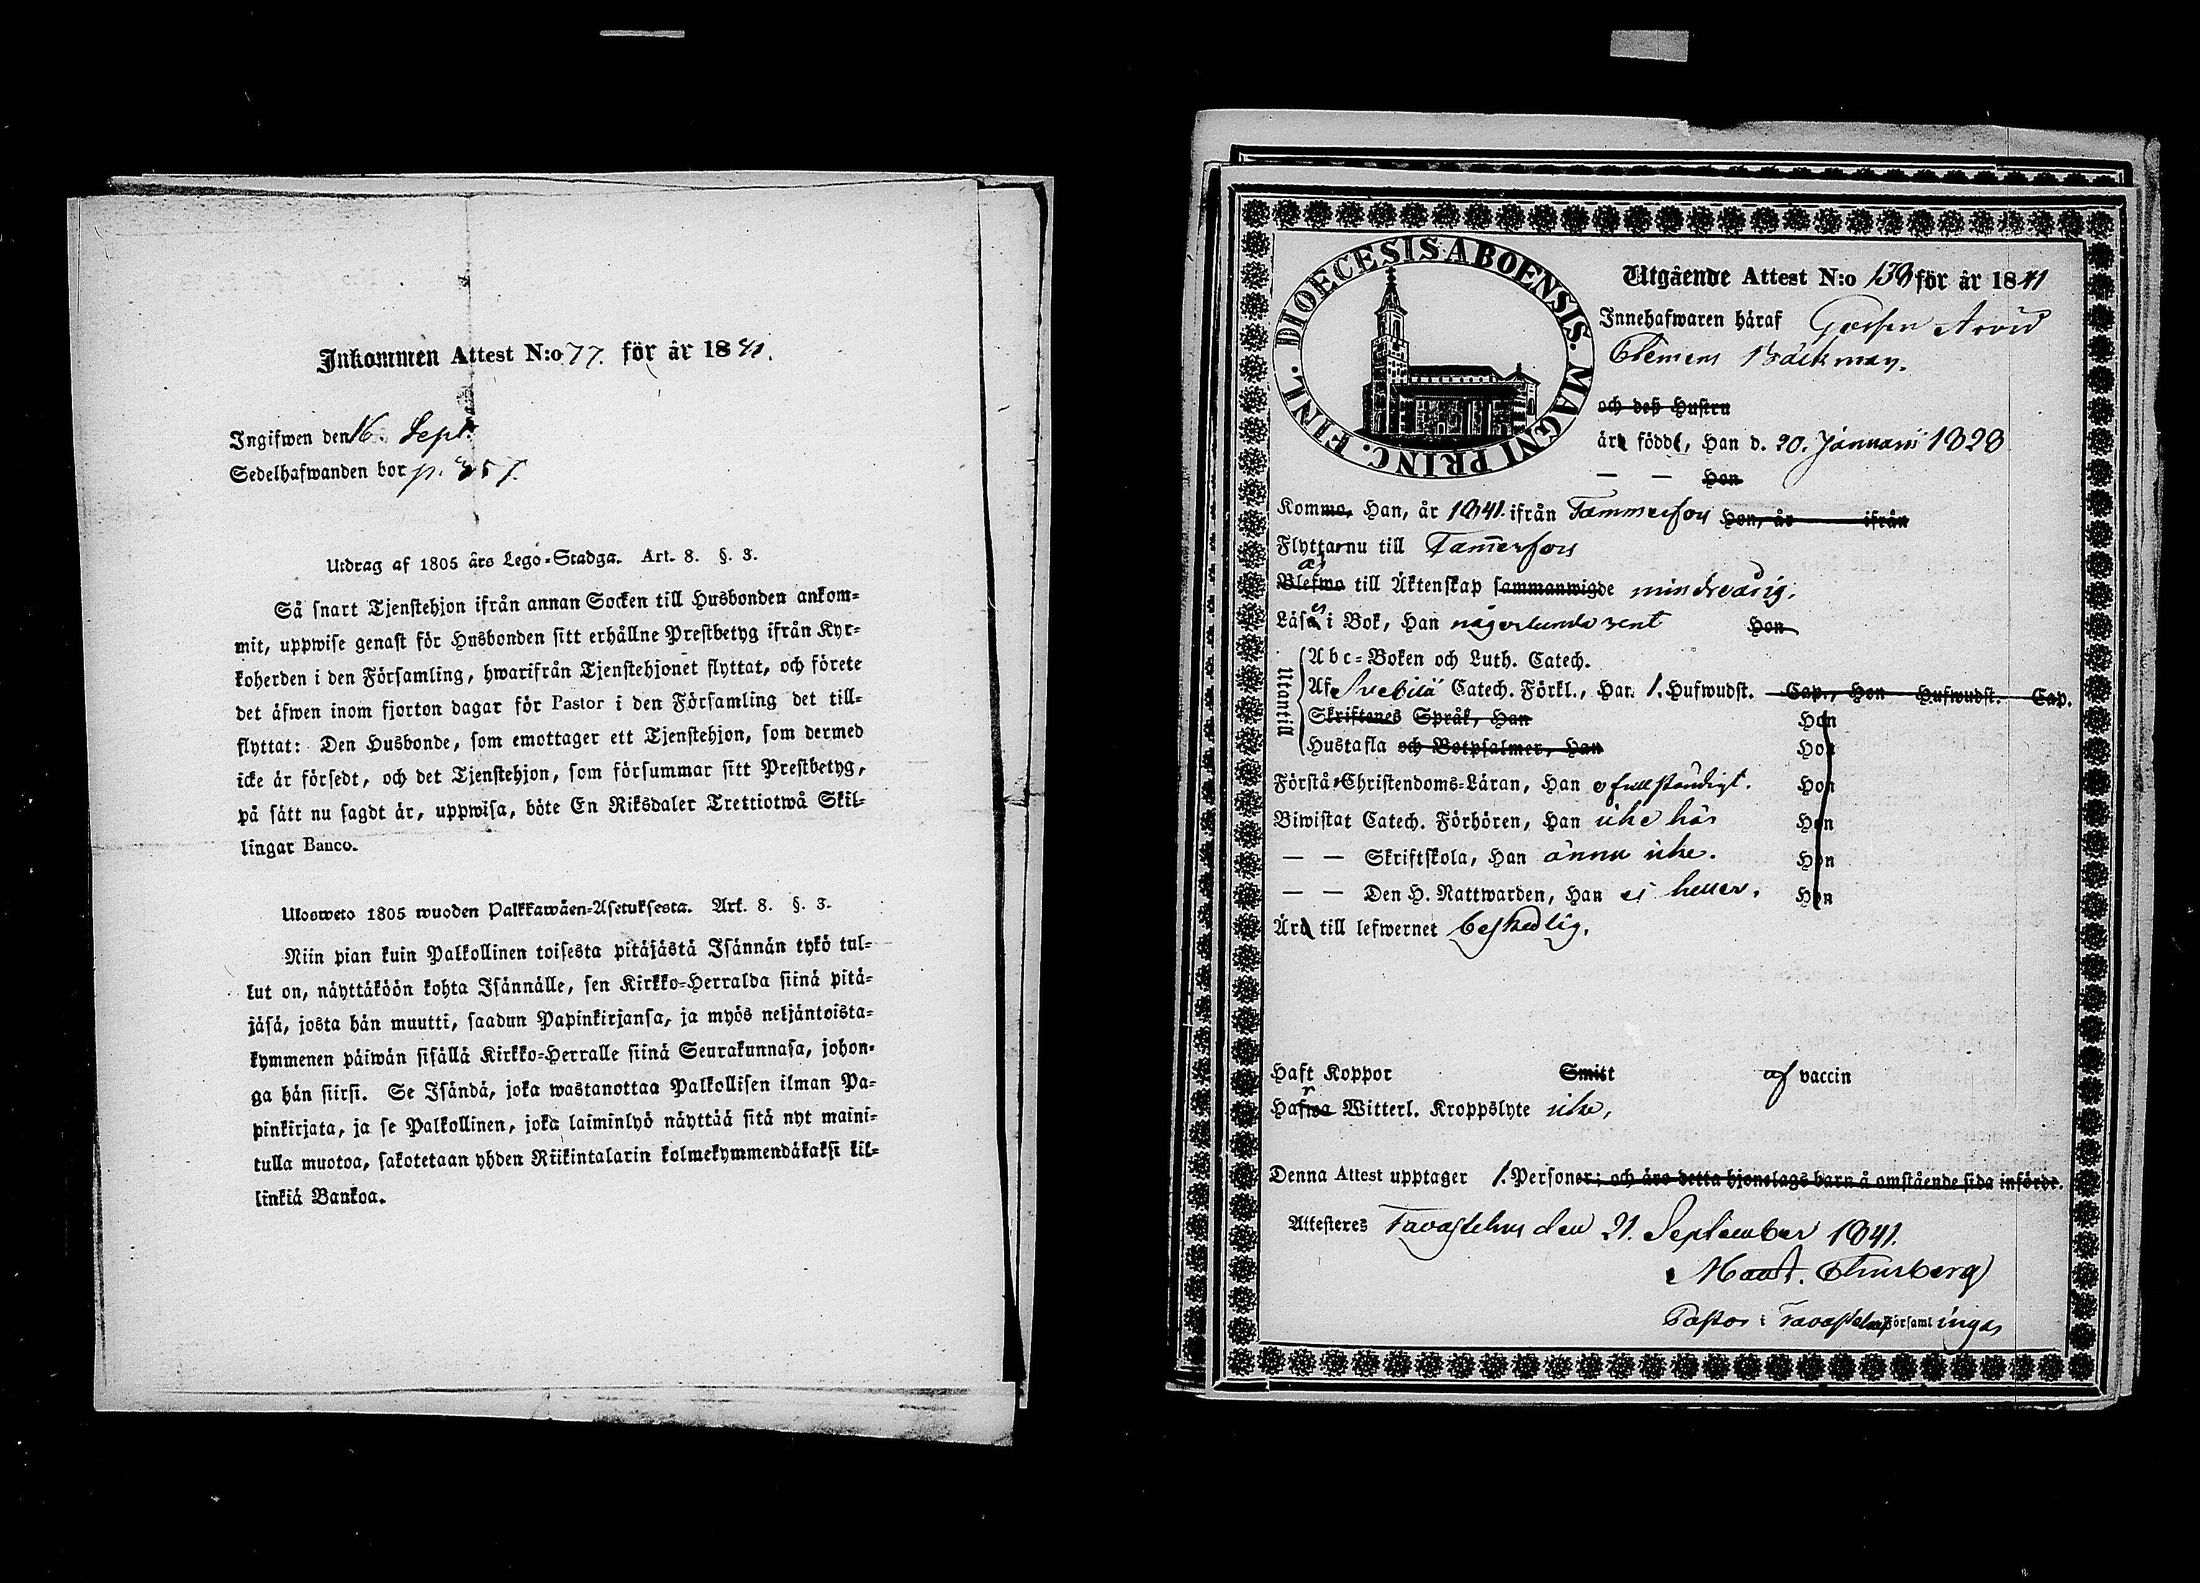 Inkommen Attest N:o 77. för år 1841.
Ingifwen den 16. Sept.
Sedelhafwanden bor p. 357.
Utdrag af 1805 års Lego-Stadga. Art. 8. §. 3.
Så snart Tjenstehjon ifrån annan Socken till Husbonden ankom-
mit, uppwise genast för Husbonden sitt erhållne Prestbetyg ifrån Kyr-
koherden i den Församling, hwarifrån Tjenstehjonet flyttat, och förete
det äfwen inom fjorton dagar för Pastor i den Församling det till-
flyttat: Den Husbonde, som emottager ett Tjenstehjon, som dermed
icke är försedt, och det Tjenstehjon, som försummar sitt Prestbetyg,
på sätt nu sagdt är, uppwisa, böte En Riksdaler Trettiotwå Skil-
lingar Banco.
Ulosweto 1805 wuoden Palkkawäen-Asetuksesta. Art. 8. §. 3.
Niin pian kuin Palkollinen toisesta pitäjästä Isännän tykö tul-
lut on, näyttäköön kohta Isännälle, sen Kirkko-Herralda siinä pitä-
jäsä, josta hän muutti, saadun Papinkirjansa, ja myös neljäntoista-
kymmenen päiwän sisällä Kirkko-Herralle siinä Seurakunnasa, johon-
ga hän siirsi. Se Isändä, joka wastanottaa Palkollisen ilman Pa-
pinkirjata, ja se Palkollinen, joka laiminlyö näyttää sitä nyt maini-
tulla muotoa, sakotetaan yhden Riikintalarin kolmekymmendäkaksi kil-
linkiä Bankoa.
DIOECESIS ABOENSIS. MAGNI PRINC. FINL.
Utgående Attest N:o 139 för år 1841
Innehafwaren häraf Arvid
Clemens Bäckman.
och deß Hustru
äro födde, Han d. 20. Januarii 1828
— — Hon
Kommo, Han, år 1841. ifrån Tammerfors Hon, år ifrån
Flyttar nu till Tamerfors
är
Blefwo till Äktenskap sammanwigde minderårig.
Läsa i Bok, Han någorlunda rent Hon
Utantill
Abc-Boken och Luth. Catech.
Af Svebilii Catech. Förkl., Han 1. Hufwudst. Cap., Hon Hufwudst. Cap.
Skriftenes Språk, Han Hon
Hustafla och Botpsalmer, Han Hon
Förstå Christendoms-Läran, Han ofullständigt. Hon
Biwistat Catech. Förhören, Han icke här Hon
— — Skriftskola, Han ännu icke. Hon
— — Den H. Nattwarden, Han ej heller. Hon
Äro till lefwernet beskedlig.
Haft Koppor Smitt af vaccin
Hafwa Witterl. Kroppslyte icke,
Denna Attest upptager 1. Personer; och äro detta hjonelags barn å omstående sida införde.
Attesteres Tavastehus den 21. September 1841.
Pastor i Tavastehus Församlingar